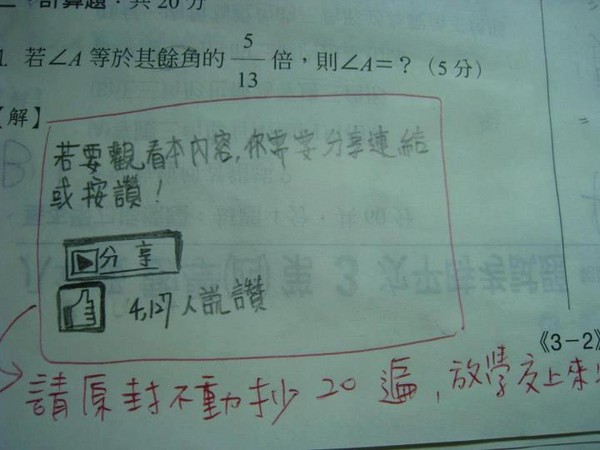 二、計算題：共20分
1. 若∠A 等於其餘角的 5/13 倍，則∠A＝？（5分）
【解】
若要觀看本內容,你需要分享連結
或按讚!
分享
4,127人說讚
《3-2》
請原封不動抄20遍,放學交上來